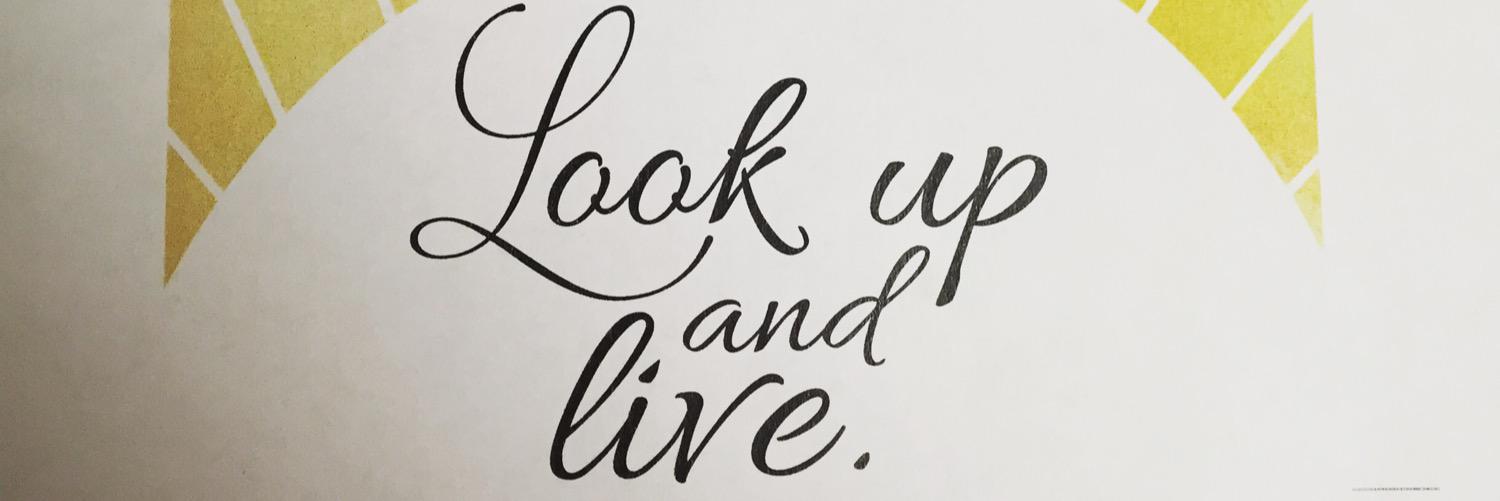 Look up
and
live.